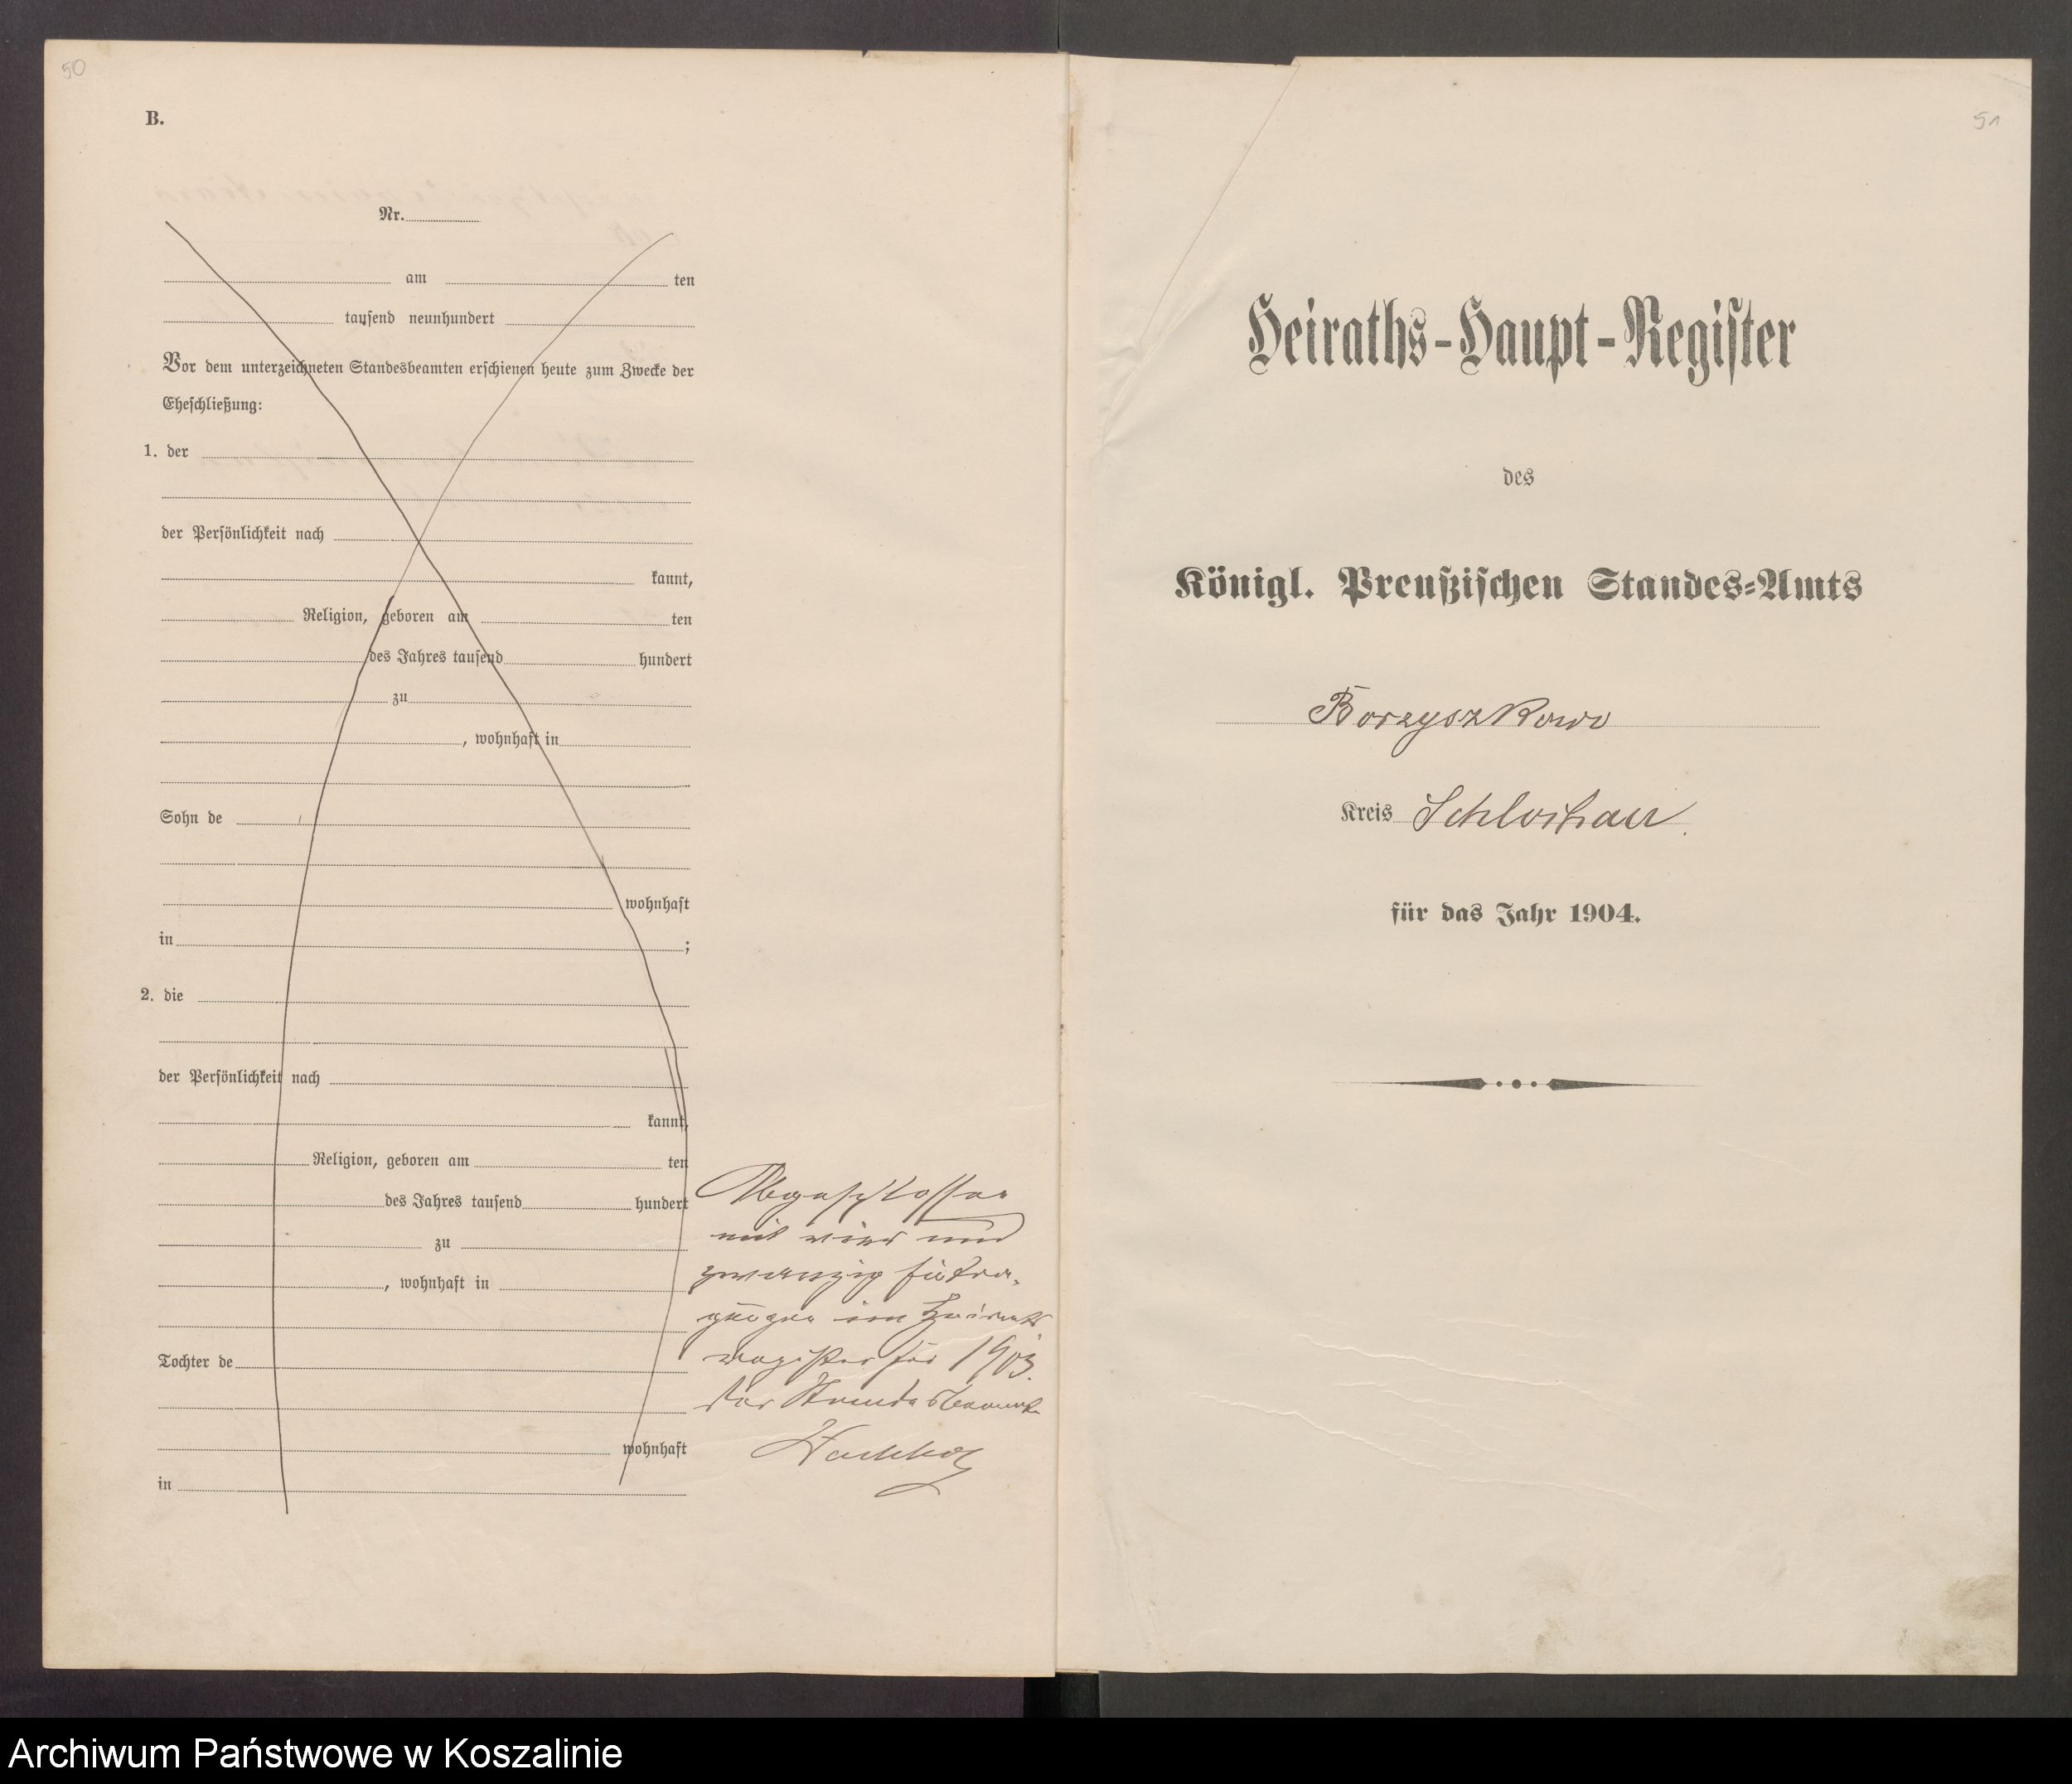 50
B.
Nr.
am ten
tausend neunhundert
Vor dem unterzeichneten Standesbeamten erschienen heute zum Zwecke der
Eheschließung:
1. der
der Persönlichkeit nach
kannt,
Religion, geboren am ten
des Jahres tausend hundert
zu
, wohnhaft in
Sohn de
wohnhaft
in ;
2. die
der Persönlichkeit nach
kannt,
Religion, geboren am ten
des Jahres tausend hundert
zu
, wohnhaft in
Tochter de
wohnhaft
in
Abgeschlossen
mit vier und
zwanzig Eintra-
gungen im Heirats
register für 1903.
Der Standesbeamte
51
Heiraths-Haupt-Register
des
Königl. Preußischen Standes-Amts
Borzyszkowo
Kreis Schlochau.
für das Jahr 1904.
Archiwum Państwowe w Koszalinie